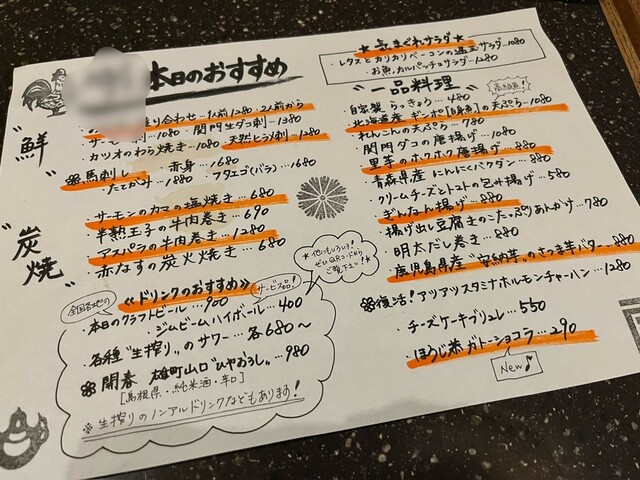 本日のおすすめ
"鮮"
り合わせ…1人前1280 2人前から
サーモン刺…1080 関門生ダコ刺…1380
カツオのわら焼き…1080 天然ヒラメ刺…1280
馬刺し 赤身…1680
たてがみ…1880 フタエゴ(バラ)…1680
"炭焼"
サーモンのカマの塩焼き…680
半熟玉子の牛肉巻き…690
アスパラの牛肉巻き…1280
赤なすの炭火焼き…680
≪ドリンクのおすすめ≫
全国各地の
本日のクラフトビール…900
サービス品!
ジムビームハイボール…400
各種"生搾り"のサワー…各680〜
開春 雄町山口"ひやおろし"…980
[島根県・純米酒・辛口]
※生搾りのノンアルドリンクなどもあります!
★他にもいろいろ!
ぜひQRコードから
ご覧下さい★!
★気まぐれサラダ★
レタスとカリカリベーコンの温玉サラダ…1080
お魚のカルパッチョサラダ…1280
"一品料理"
自家製 らっきょう…480
北海道産 ギンポ[白身魚]の天ぷら…1080
れんこんの天ぷら…780
関門ダコの唐揚げ…1080
里芋のホクホク唐揚げ…880
青森県産 にんにくバクダン…880
クリームチーズとトマトの包み揚げ…580
ぎんなん揚げ…880
揚げ出し豆腐きのこたっぷりあんかけ…780
明太だし巻き…880
鹿児島県産"安納芋"のさつま芋バター…880
復活!アツアツスタミナホルモンチャーハン…1280
チーズケーキブリュレ…550
ほうじ茶ガトーショコラ…290
New♪